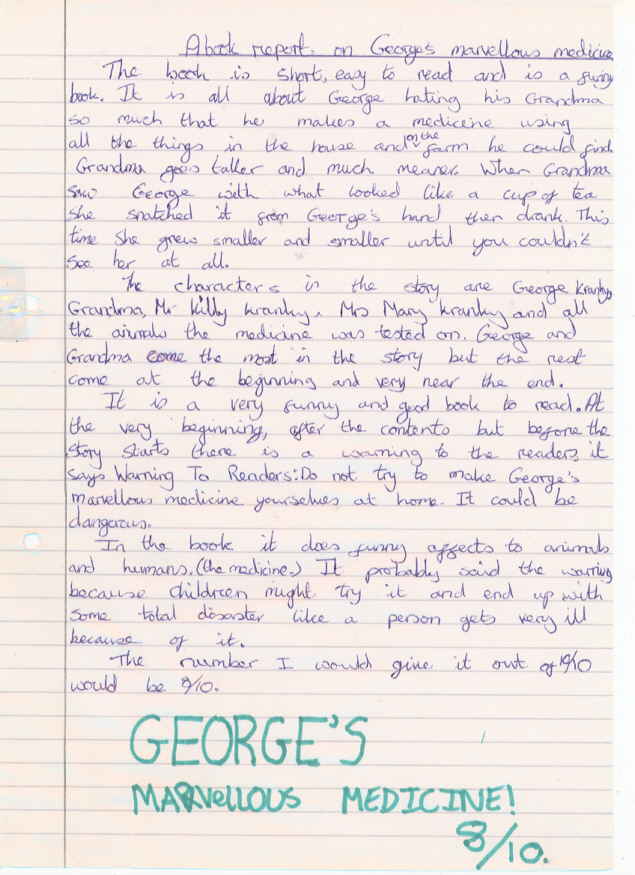 A book report on George's marvellous medicine
The book is short, easy to read and is a funny
book. It is all about George hating his Grandma
so much that he makes a medicine using
all the things in the house and on the farm he could find.
Grandma goes taller and much meaner. When Grandma
saw George with what looked like a cup of tea
she snatched it from George's hand then drank. This
time she grew smaller and smaller until you couldn't
see her at all.
The characters in the story are George Kranky,
Grandma, Mr Killy Kranky, Mrs Mary Kranky and all
the animals the medicine was tested on. George and
Grandma come the most in the story but the rest
come at the beginning and very near the end.
It is a very funny and good book to read. At
the very beginning, after the contents but before the
story starts there is a warning to the readers, it
says Warning To Readers: Do not try to make George's
marvellous medicine yourselves at home. It could be
dangerous.
In the book it does funny affects to animals
and humans. (the medicine.) It probably said the warning
because children might try it and end up with
some total disaster like a person gets very ill
because of it.
The number I would give it out of 10/10
would be 8/10.
GEORGE'S
MARVELLOUS MEDICINE!
8/10.